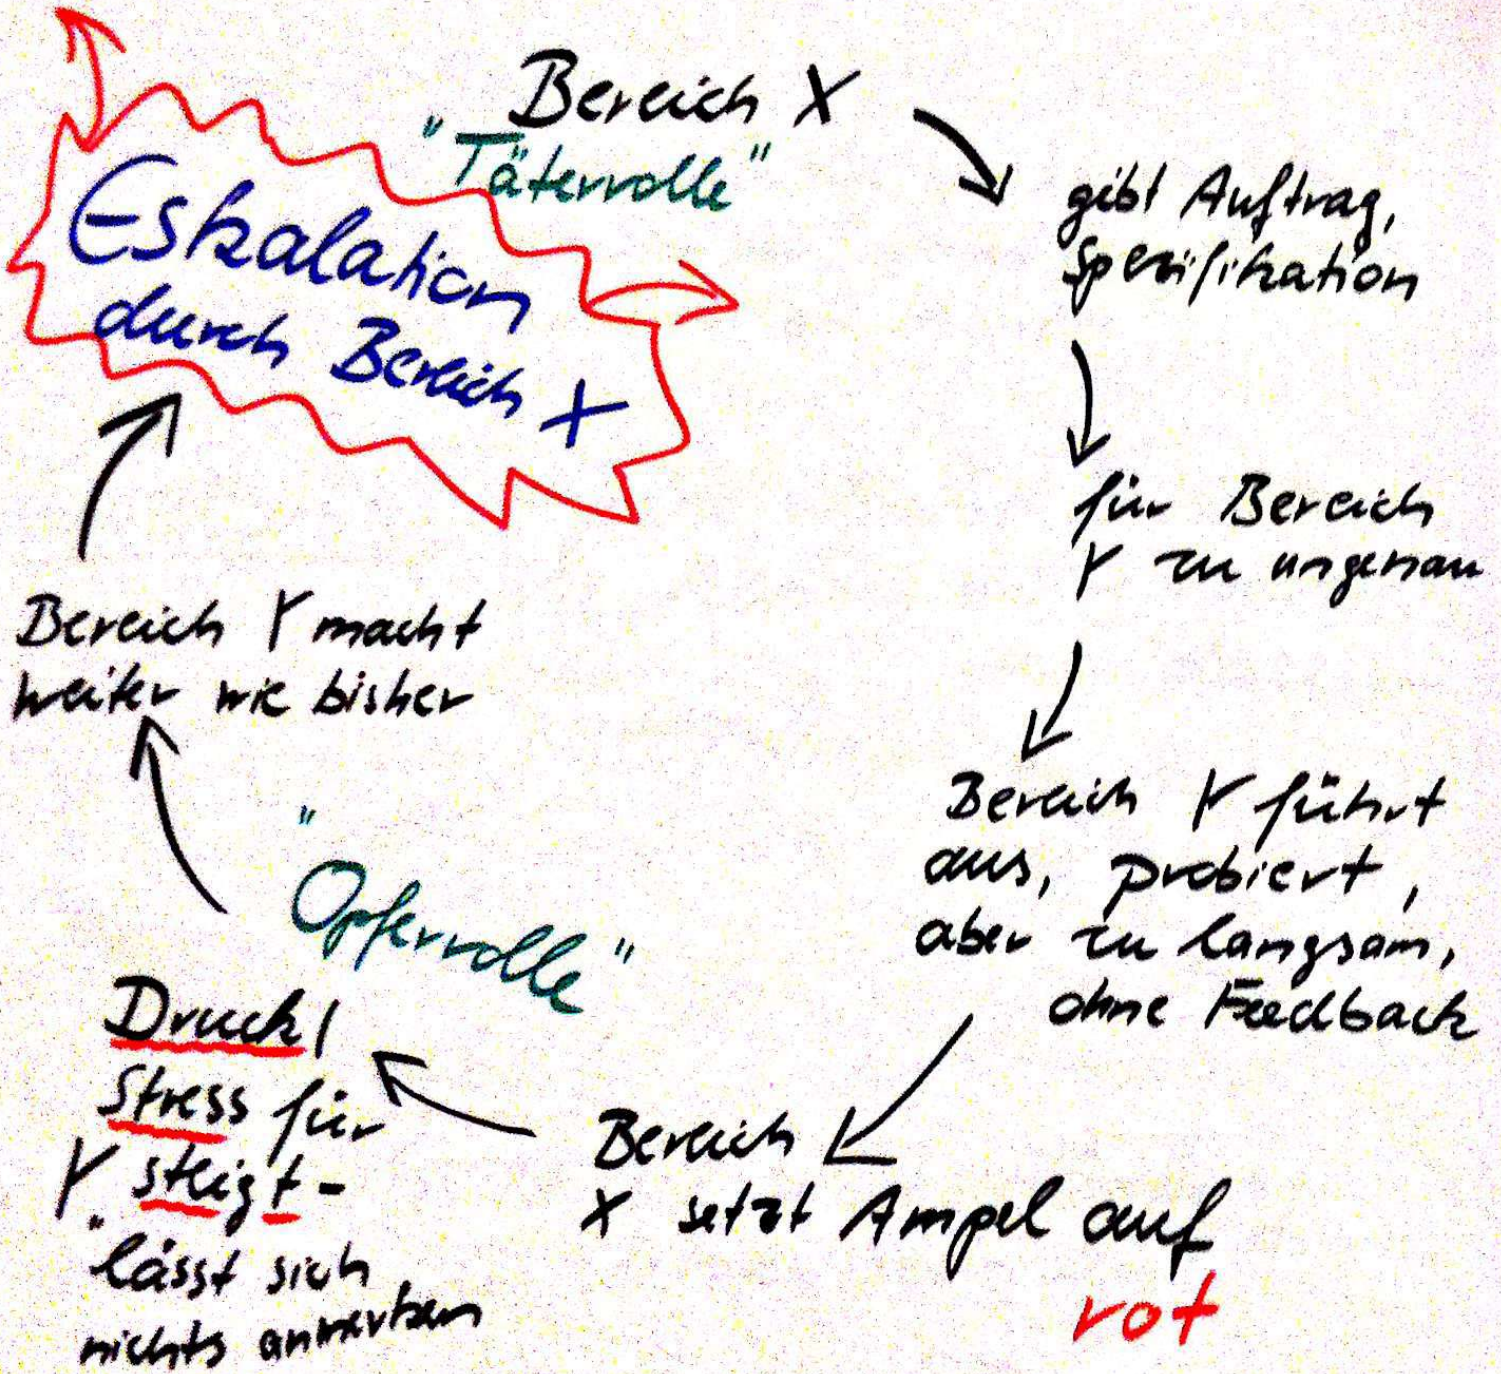 Bereich X
"Täterrolle"
gibt Auftrag,
Spezifikation
für Bereich
Y zu ungenau
Bereich Y führt
aus, probiert,
aber zu langsam,
ohne Feedback
Bereich
X setzt Ampel auf
rot
"Opferrolle"
Druck/
Stress für
Y steigt-
"lässt sich
nichts anmerken
Bereich Y macht
weiter wie bisher
Eskalation
durch Bereich X